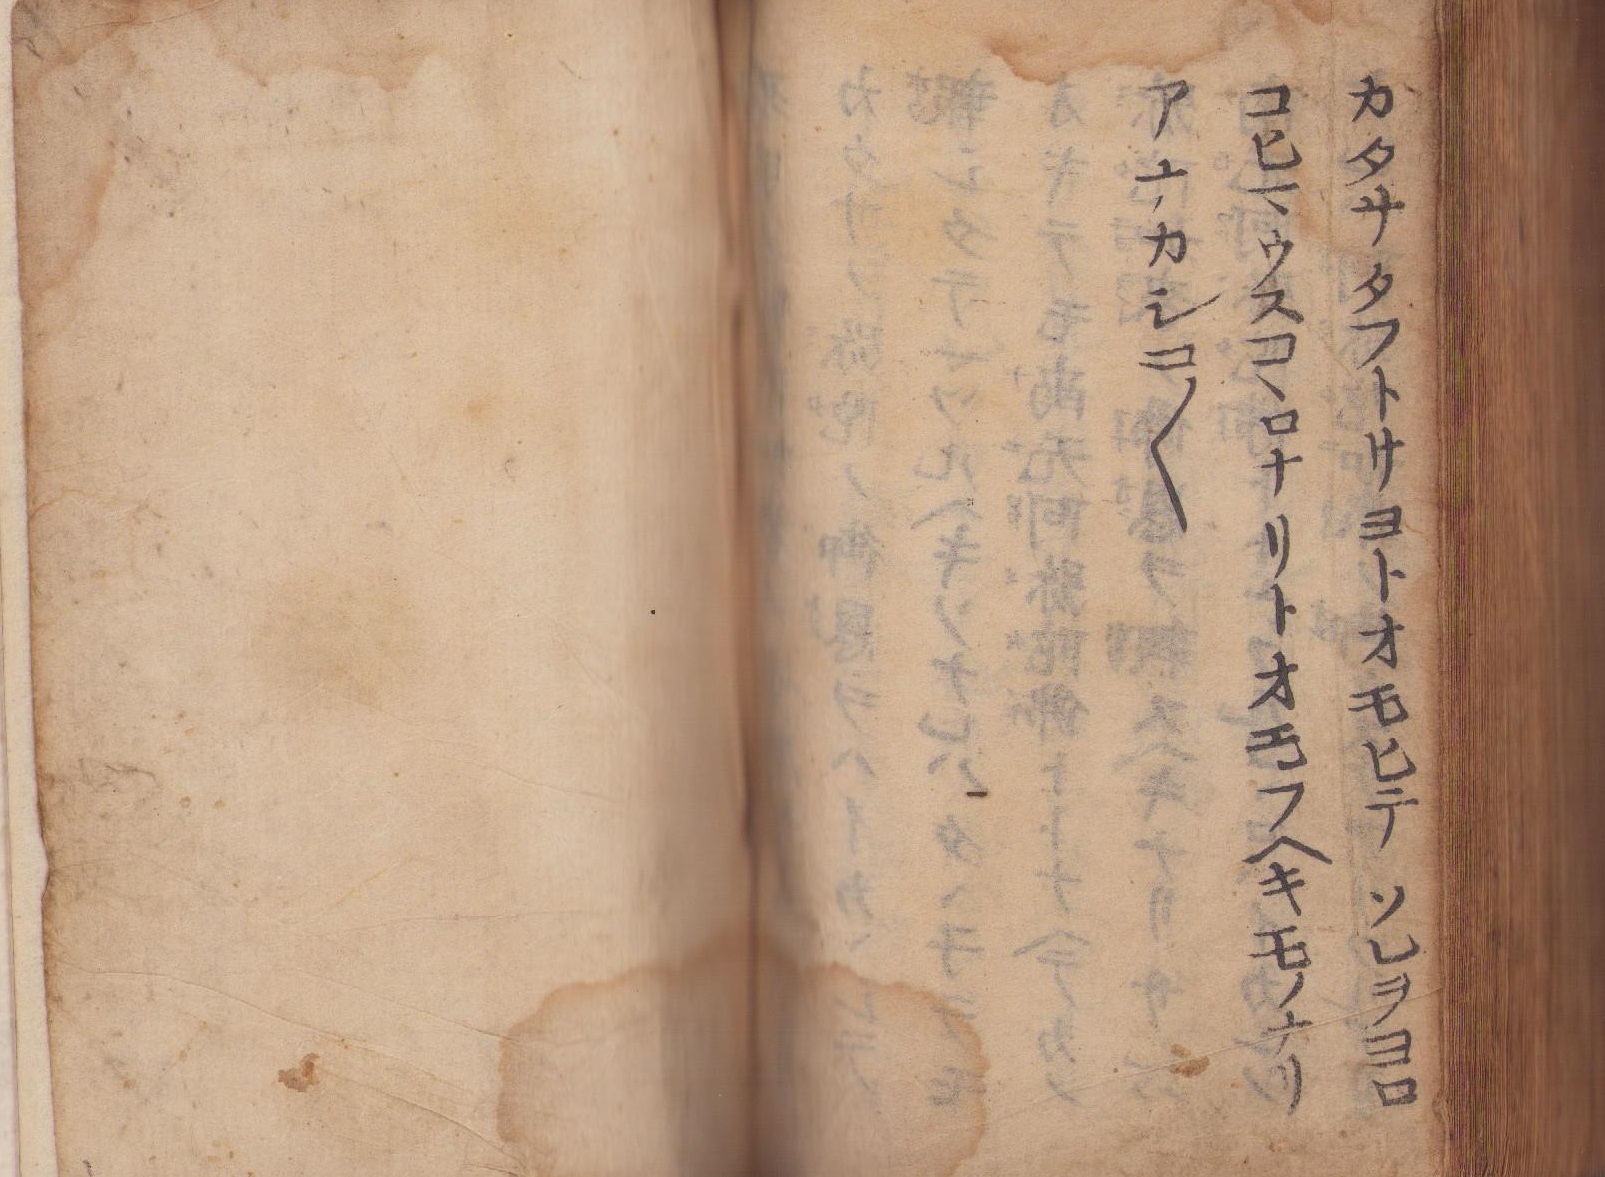 カタサタフトサヨトオモヒテソレヲヨロ
コヒマウスコヽロナリトオモフヘキモノナリ
アナカシコ〱